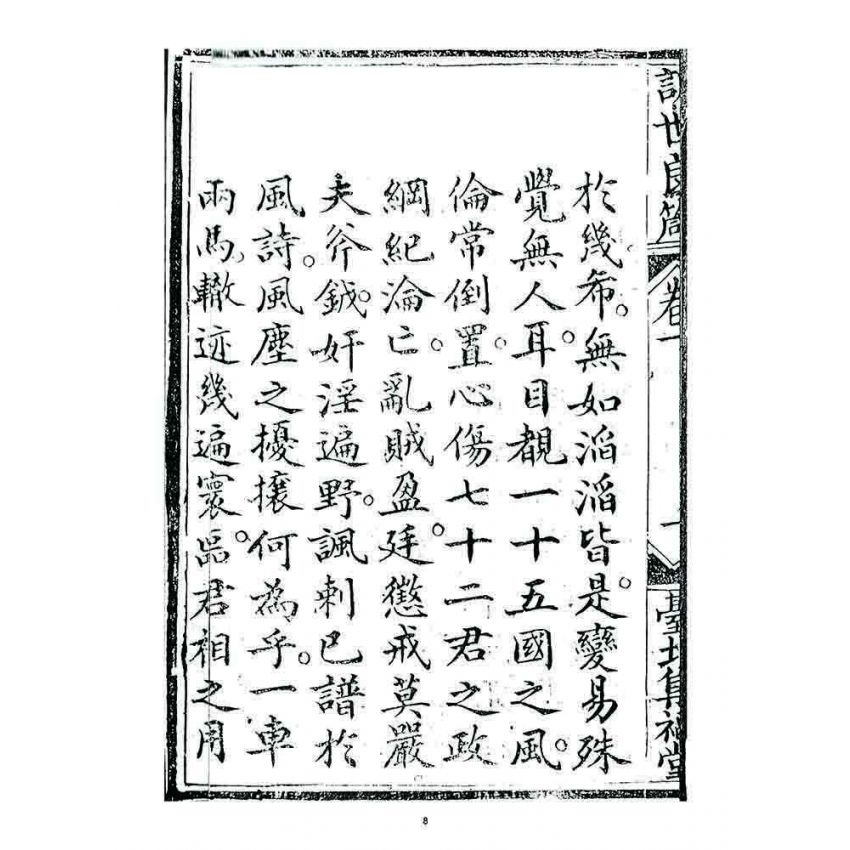 世良箴 卷一 一 臺北集神堂
於幾希。無如滔滔皆是。變易殊
覺無人。耳目覩一十五國之風。
倫常倒置。心傷七十二君之政
綱紀淪亡。亂賊盈廷。懲戒莫嚴
夫斧鉞。奸淫遍野。諷刺已譜於
風詩。風塵之擾攘何為乎。一車
兩馬。轍迹幾遍寰區。君相之用
8